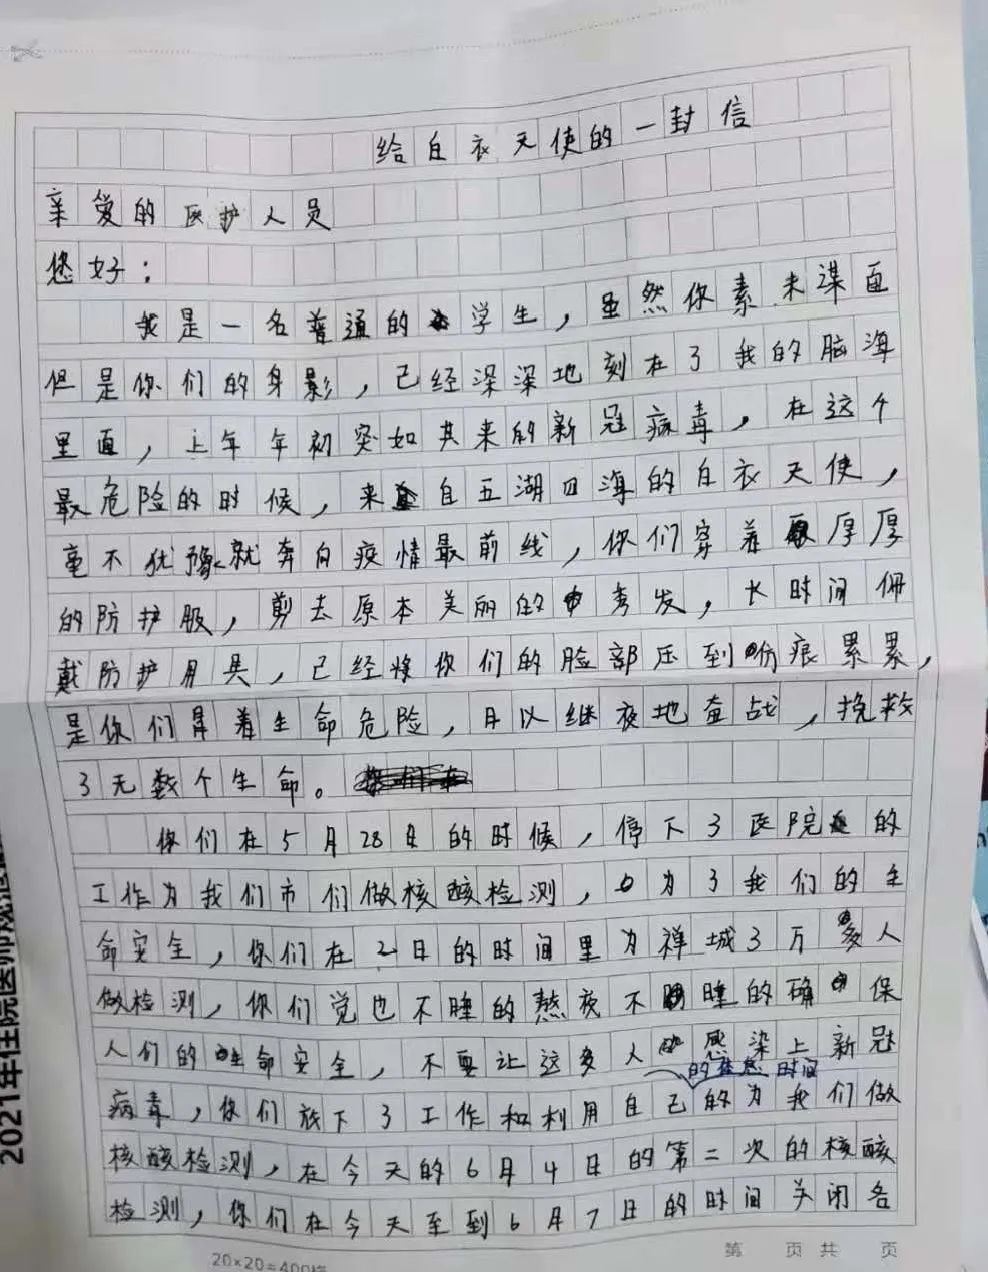 给白衣天使的一封信
亲爱的医护人员
您好：
我是一名普通的学生，虽然你素未谋面
但是你们的身影，已经深深地刻在了我的脑海
里面，上年年初突如其来的新冠病毒，在这个
最危险的时候，来自五湖四海的白衣天使，
毫不犹豫就奔向疫情最前线，你们穿着厚厚
的防护服，剪去原本美丽的秀发，长时间佩
戴防护用具，已经将你们的脸部压到伤痕累累，
是你们冒着生命危险，日以继夜地奋战，挽救
了无数个生命。
你们在5月28日的时候，停下了医院的
工作为我们市们做核酸检测，为了我们的生
命安全，你们在2日的时间里为禅城3万多人
做检测，你们觉也不睡的熬夜不睡的确保
人们的生命安全，不要让这多人感染上新冠
的休息时间
病毒，你们放下了工作和利用自己的为我们做
核酸检测，在今天的6月4日的第二次的核酸
检测，你们在今天至到6月7日的时间关闭各
20×20=400格
第 页 共 页
2021年住院医师规范